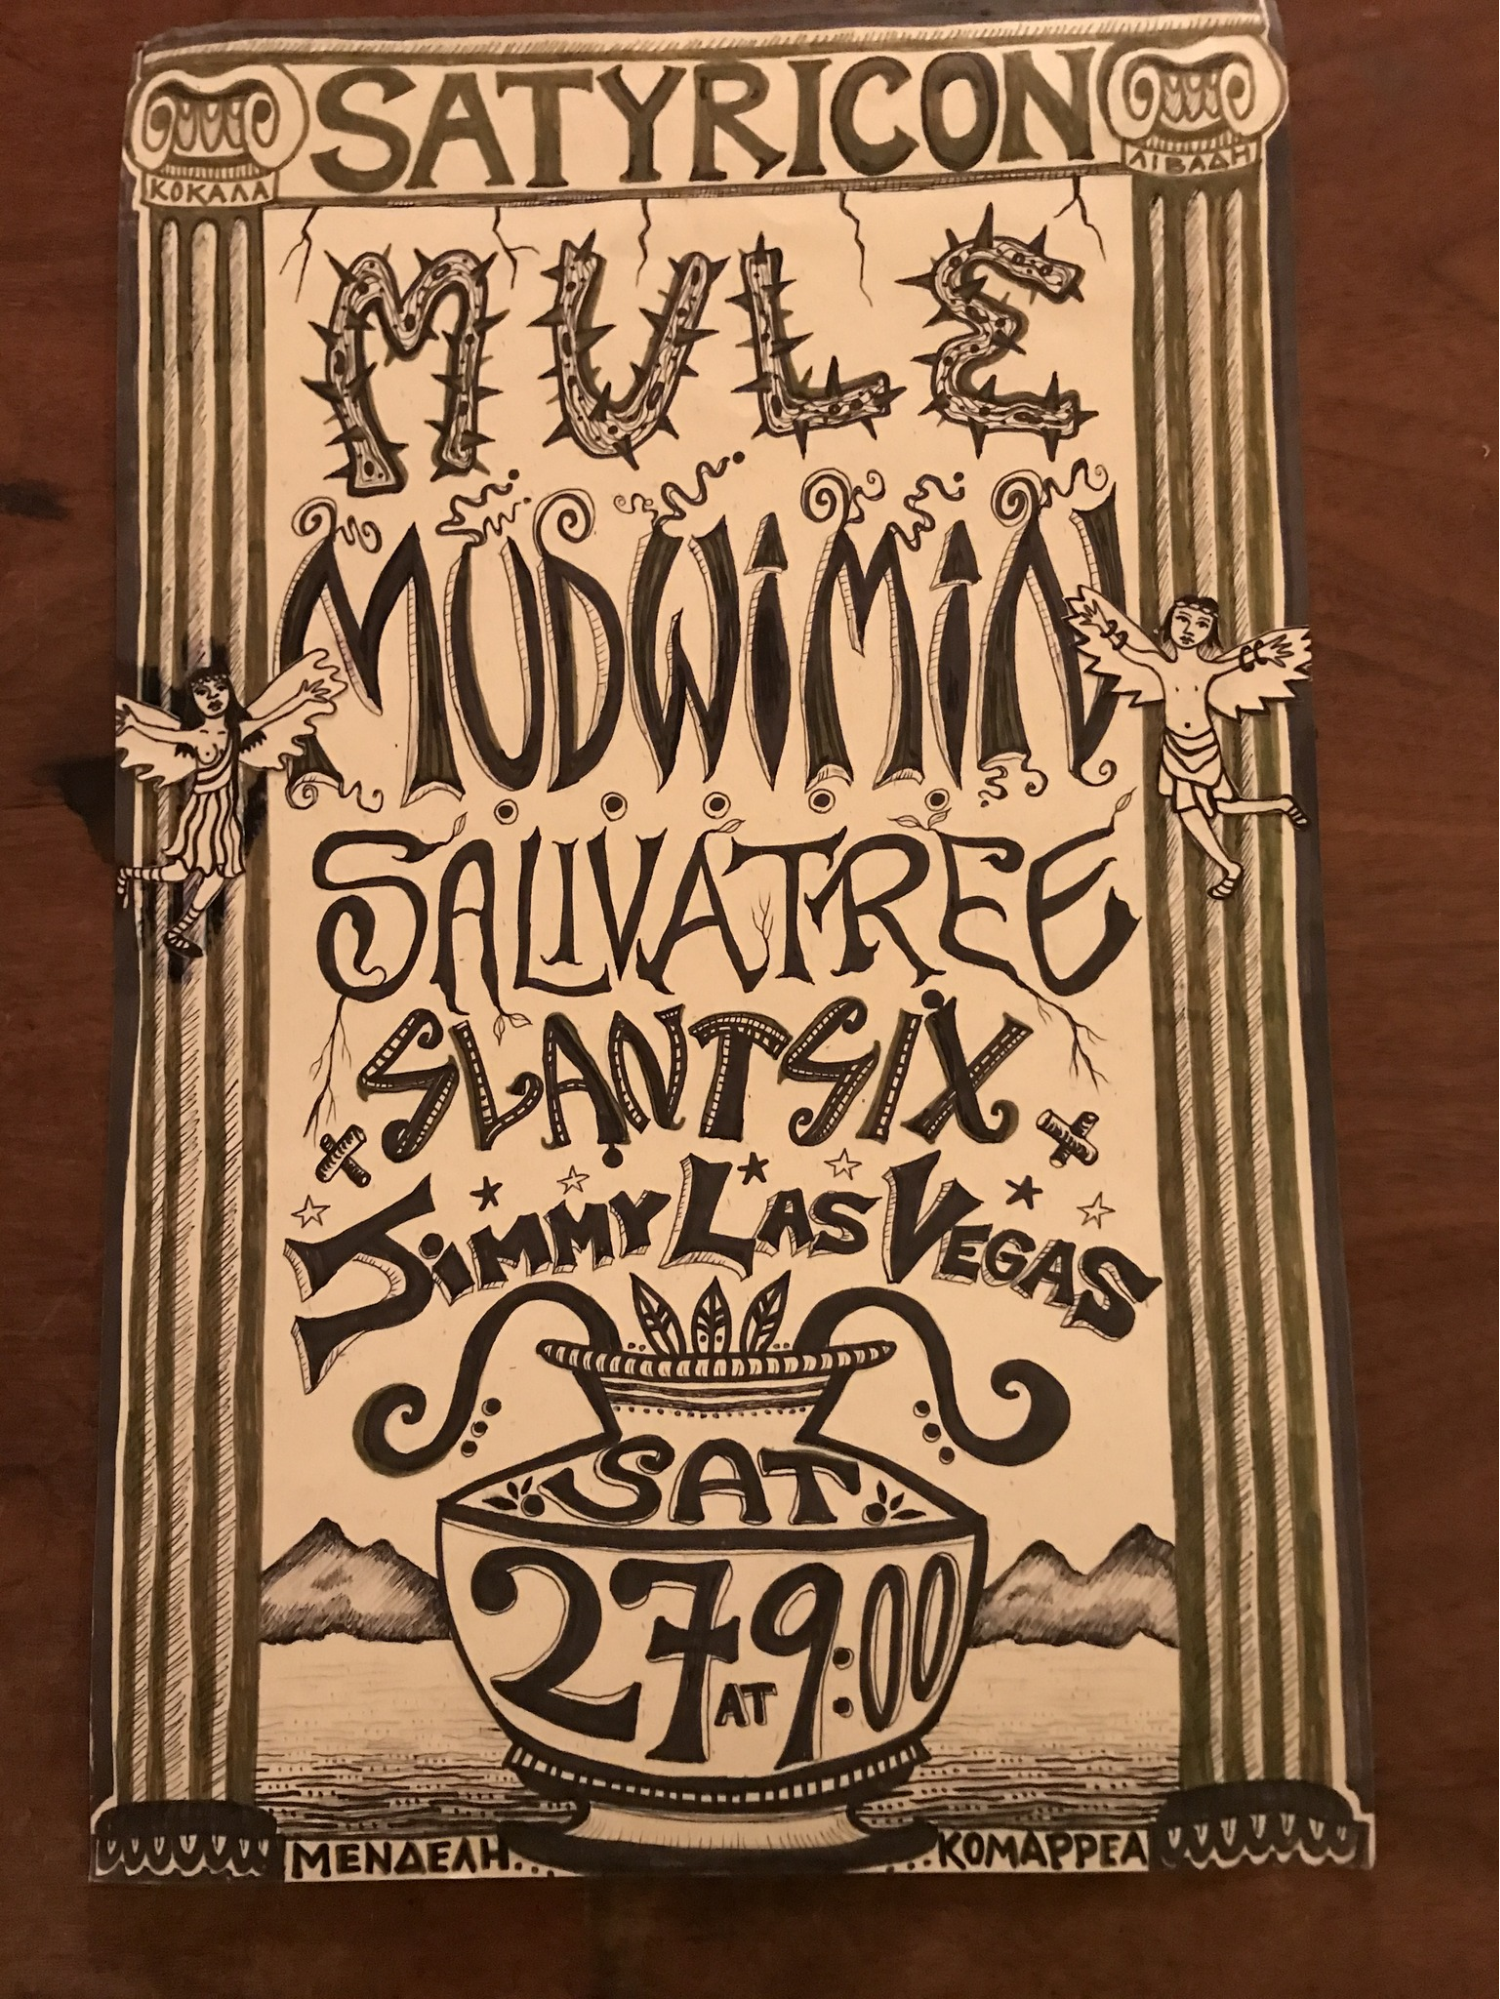 SATYRICON
ΚΟΚΑΛΑ
ΛΙΒΑΔΗ
MULE
MUDWiMiN
SALIVATREE
SLANT SIX
JiMMY LAS VEGAS
SAT
27 AT 9:00
ΜΕΝΔΕΛΗ
ΚΟΜΑΡΡΕΑ